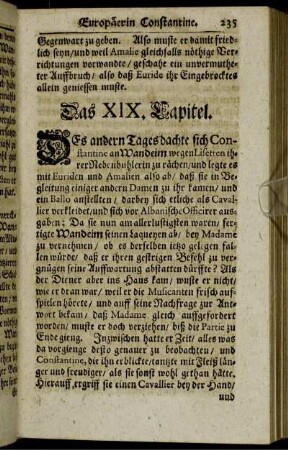 Europäerin Constantine. 235
Gegenwart zu geben. Also muste er damit fried-
lich seyn/ und weil Amalie gleichfalls nöthige Ver-
richtungen vorwandte/ geschahe ein unvermuthe-
ter Auffbruch/ also daß Euride ihr Eingebrocktes
allein geniessen muste.
Das XIX. Capitel.
DEs andern Tages dachte sich Con-
stantine an Wandeim wegen Lisetten ih-
rer Nebenbuhlerin zu rächen/ und legte es
mit Euriden und Amalien also ab/ daß sie in Be-
gleitung einiger andern Damen zu ihr kamen/ und
ein Ballo anstellten/ darbey sich etliche als Caval-
lier verkleidet/ und sich vor Albanische Officirer aus-
gaben; Da sie nun am allerlustigsten waren/ fer-
tigte Wandeim seinen Laqueyen ab/ bey Madame
zu vernehmen/ ob es derselben itzo gelegen fal-
len würde/ daß er ihren gestrigen Befehl zu ver-
gnügen seine Auffwartung abstatten dürffte? Als
der Diener aber ins Haus kam/ wuste er nicht/
wie er dran war/ weil er die Musicanten frisch auf-
spielen hörete/ und auff seine Nachfrage zur Ant-
wort bekam/ daß Madame gleich auffgefordert
worden/ muste er doch verziehen/ biß die Partie zu
Ende gieng. Inzwischen hatte er Zeit/ alles was
da vorgienge desto genauer zu beobachten/ und
Constantine, die ihn erblickte/ tantzte mit Fleiß län-
ger und freudiger/ als sie sonst wohl gethan hätte.
Hierauff ergriff sie einen Cavallier bey der Hand/
und